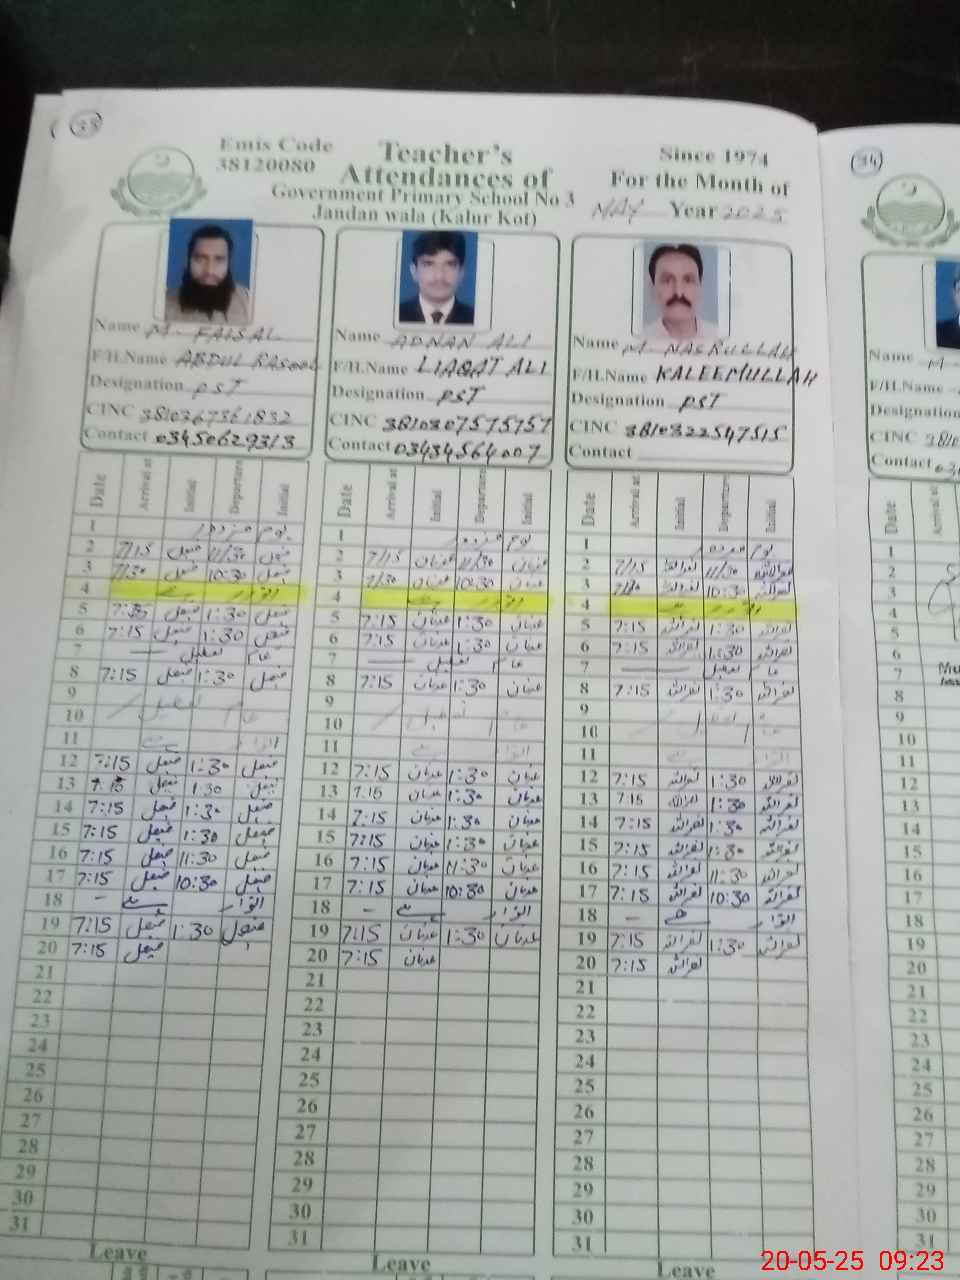 35
Emis Code
38120080
Teacher's
Attendances of
Government Primary School No 3
Jandan wala (Kalur Kot)
Since 1974
For the Month of
MAY Year 2025
Name M. FAISAL
F/H.Name ABDUL RASOOL
Designation PST
CINC 3810367361832
Contact 03450629313
Date Arrival at Initial Departure Initial
1 یوم مزدور
2 7/15 فیصل 11/30 فیصل
3 7/30 فیصل 10:30 فیصل
4 اتوار ہے
5 7:15 فیصل 1:30 فیصل
6 7:15 فیصل 1:30 فیصل
7 عام تعطیل
8 7:15 فیصل 1:30 فیصل
9
10 عام تعطیل
11 اتوار ہے
12 7:15 فیصل 1:30 فیصل
13 7:15 فیصل 1:30 فیصل
14 7:15 فیصل 1:30 فیصل
15 7:15 فیصل 1:30 فیصل
16 7:15 فیصل 11:30 فیصل
17 7:15 فیصل 10:30 فیصل
18 - اتوار ہے
19 7:15 فیصل 1:30 فیصل
20 7:15 فیصل
21
22
23
24
25
26
27
28
29
30
31
Leave
Name ADNAN ALI
F/H.Name LIAQAT ALI
Designation PST
CINC 3810307575757
Contact 03434564007
Date Arrival at Initial Departure Initial
1 یوم مزدور
2 7/15 عدنان 11/30 عدنان
3 7/30 عدنان 10:30 عدنان
4 اتوار ہے
5 7:15 عدنان 1:30 عدنان
6 7:15 عدنان 1:30 عدنان
7 عام تعطیل
8 7:15 عدنان 1:30 عدنان
9
10 عام تعطیل
11 اتوار ہے
12 7:15 عدنان 1:30 عدنان
13 7:15 عدنان 1:30 عدنان
14 7:15 عدنان 1:30 عدنان
15 7:15 عدنان 1:30 عدنان
16 7:15 عدنان 11:30 عدنان
17 7:15 عدنان 10:30 عدنان
18 - اتوار ہے
19 7:15 عدنان 1:30 عدنان
20 7:15 عدنان
21
22
23
24
25
26
27
28
29
30
31
Leave
Name M. NASRULLAH
F/H.Name KALEEMULLAH
Designation PST
CINC 3810322547515
Contact
Date Arrival at Initial Departure Initial
1 یوم مزدور
2 7/15 نصراللہ 11/30 نصراللہ
3 7/30 نصراللہ 10:30 نصراللہ
4 اتوار ہے
5 7:15 نصراللہ 1:30 نصراللہ
6 7:15 نصراللہ 1:30 نصراللہ
7 عام تعطیل
8 7:15 نصراللہ 1:30 نصراللہ
9
10 عام تعطیل
11 اتوار ہے
12 7:15 نصراللہ 1:30 نصراللہ
13 7:15 نصراللہ 1:30 نصراللہ
14 7:15 نصراللہ 1:30 نصراللہ
15 7:15 نصراللہ 1:30 نصراللہ
16 7:15 نصراللہ 11:30 نصراللہ
17 7:15 نصراللہ 10:30 نصراللہ
18 - اتوار ہے
19 7:15 نصراللہ 1:30 نصراللہ
20 7:15 نصراللہ
21
22
23
24
25
26
27
28
29
30
31
Leave
Name M
F/H.Name
Designation
CINC 3810
Contact 03
Date Arrival at
1
2
3
4
5
6
7
8
9
10
11
12
13
14
15
16
17
18
19
20
21
22
23
24
25
26
27
28
29
30
31
20-05-25 09:23